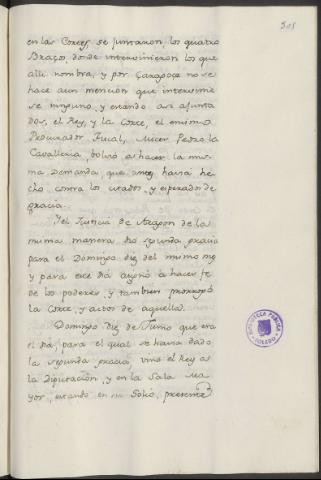 en las Cortes, se juntaron, los quatro
Brazos, donde intervinieron los que
alli nombra, y por Çaragoça no se
hace aun mencion que interviniese
se ninguno, y estando asi ajunta
dos, el Rey, y la Corte, el mismo
Procurador Fiscal, Micer Pedro la
Cavalleria, bolvió a hacer la mis
ma Demanda, que antes havia he
cho contra los citados, y esperados de
gracia.
Y el Justicia de Aragon de la
misma manera dio segunda gracia
para el Domingo diez del mismo mes
y para ese dia asignó a hacer fe
de los poderes, y tambien prorrogó
la Corte, y actos de aquella.
Domingo diez de Junio que era
el dia, para el qual se havia dado
la segunda gracia, vino el Rey a
la Diputacion, y en la Sala Ma
yor, estando en su Solio, presente
BIBLIOTECA PUBLICA
TOLEDO